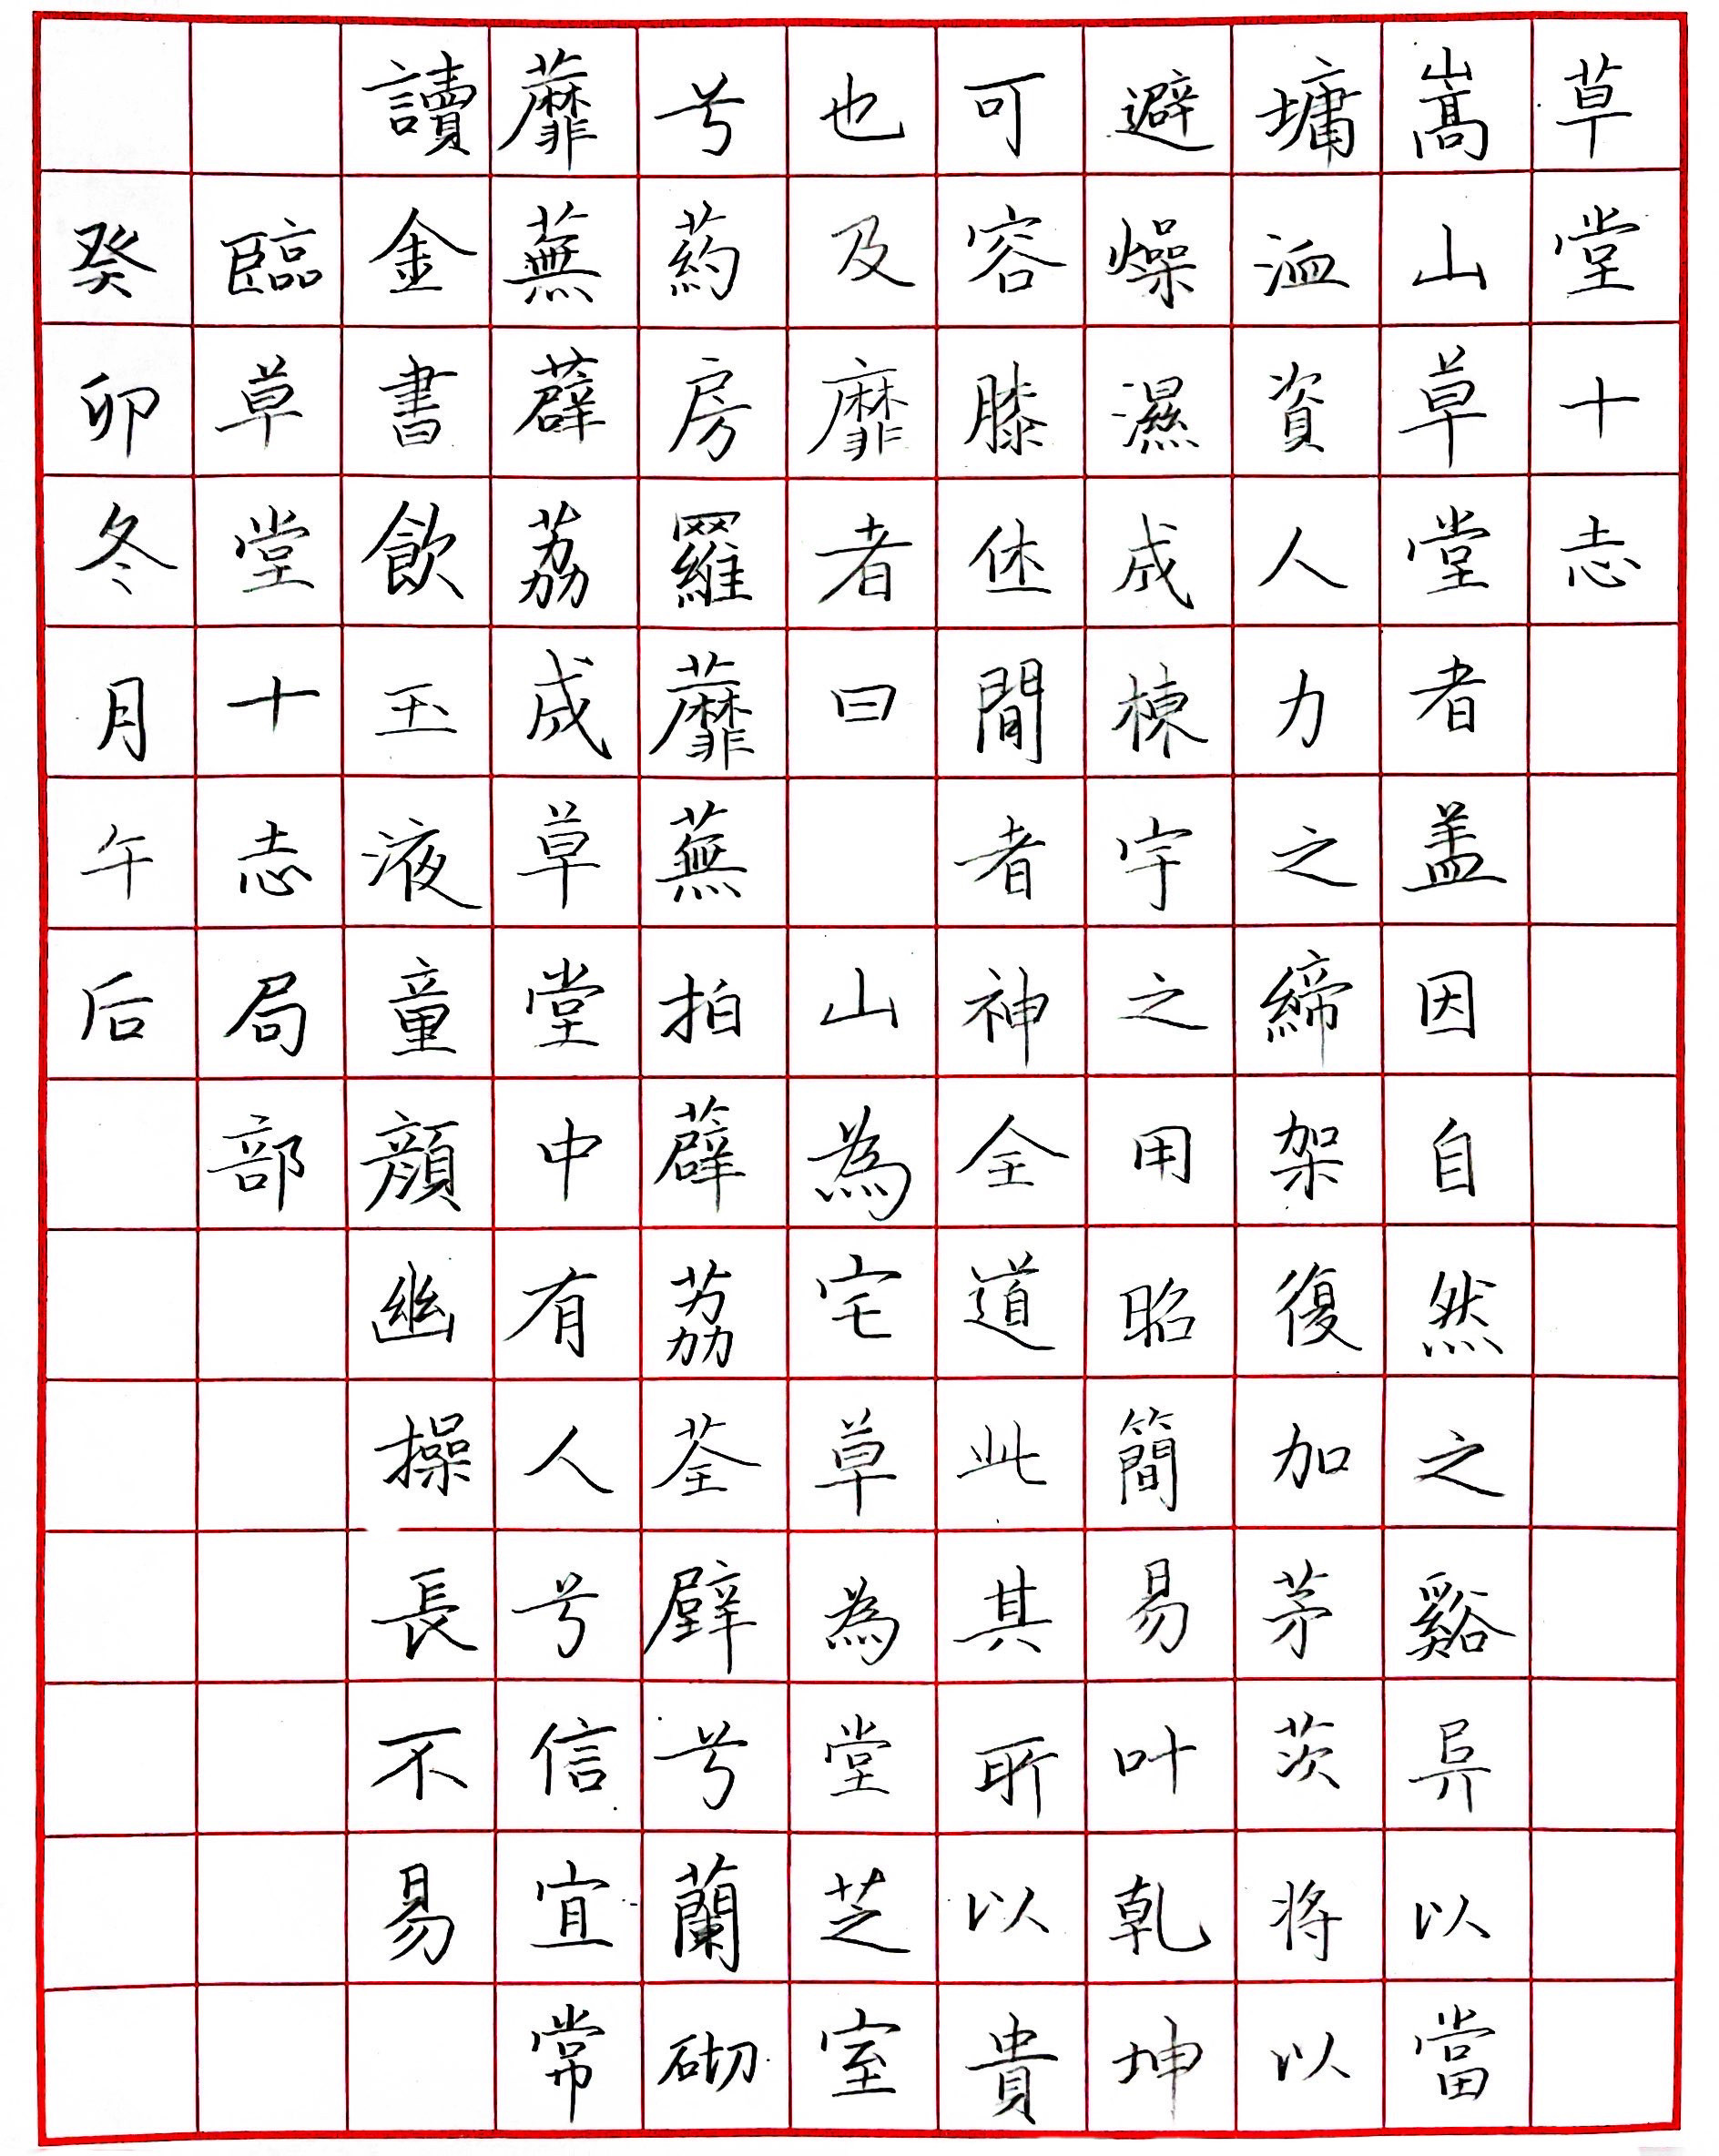 草堂十志
嵩山草堂者盖因自然之谿𠔥以當
墉洫資人力之締架復加茅茨将以
避燥濕成棟宇之用昭簡易叶乾坤
可容膝休間者神全道此其所以貴
也及靡者曰山為宅草為堂芝室
兮葯房羅蘼蕪拍薜荔荃壁兮蘭砌
蘼蕪薜荔成草堂中有人兮信宜常
讀金書飲玉液童顔幽操長不易
臨草堂十志局部
癸卯冬月午后